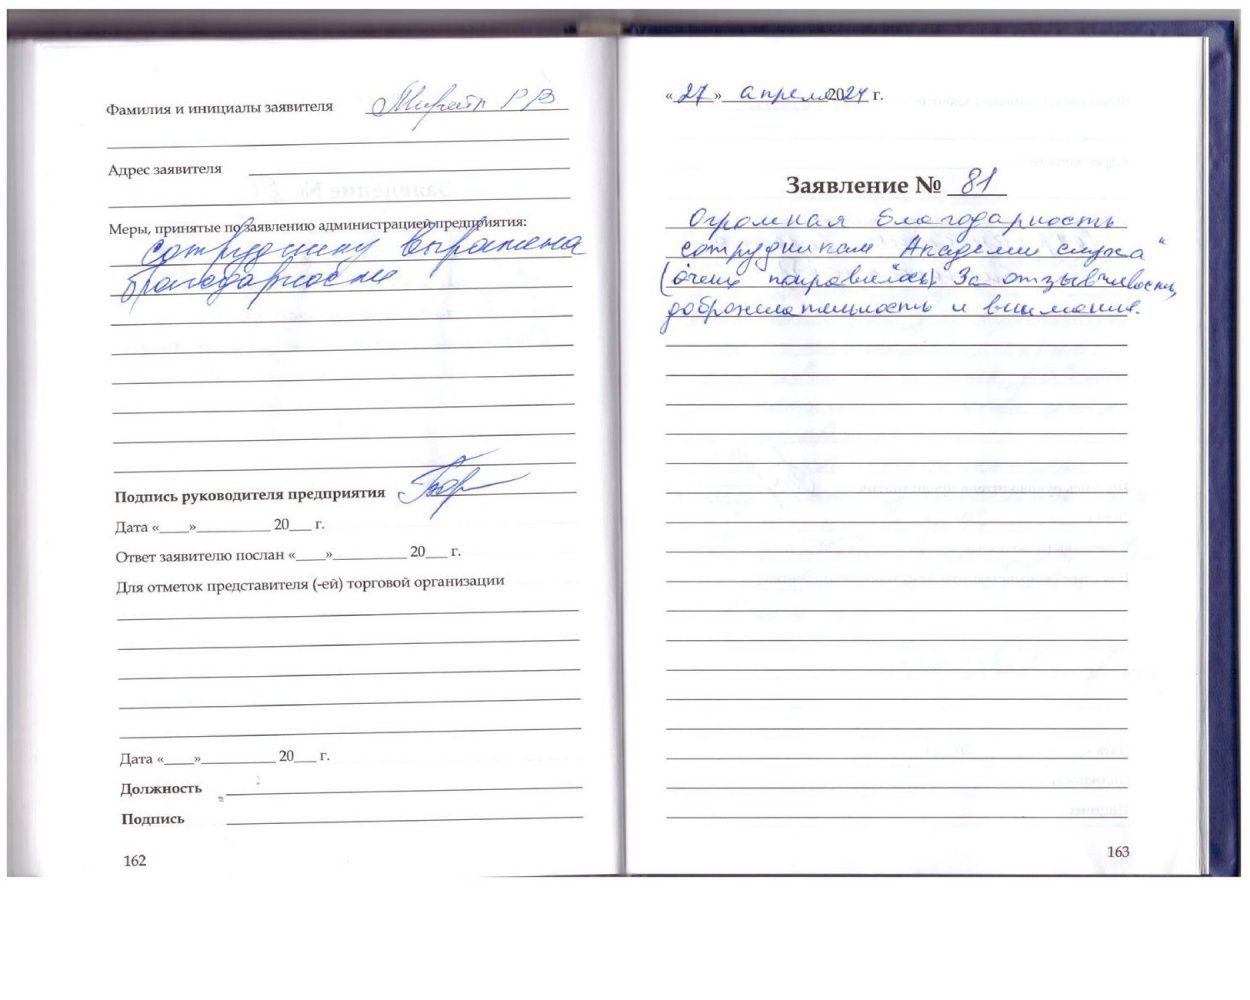 Фамилия и инициалы заявителя
Адрес заявителя
Меры, принятые по заявлению администрацией предприятия:
сотруднику выражена
благодарность
Подпись руководителя предприятия
Дата «____»__________ 20___ г.
Ответ заявителю послан «____»__________ 20___ г.
Для отметок представителя (-ей) торговой организации
Дата «____»__________ 20___ г.
Должность
Подпись
162
«27» апреля 2024 г.
Заявление № 81
Огромная благодарность
сотрудникам Академии слуха"
(очень понравилось) За отзывчивость,
доброжелательность и внимание.
163